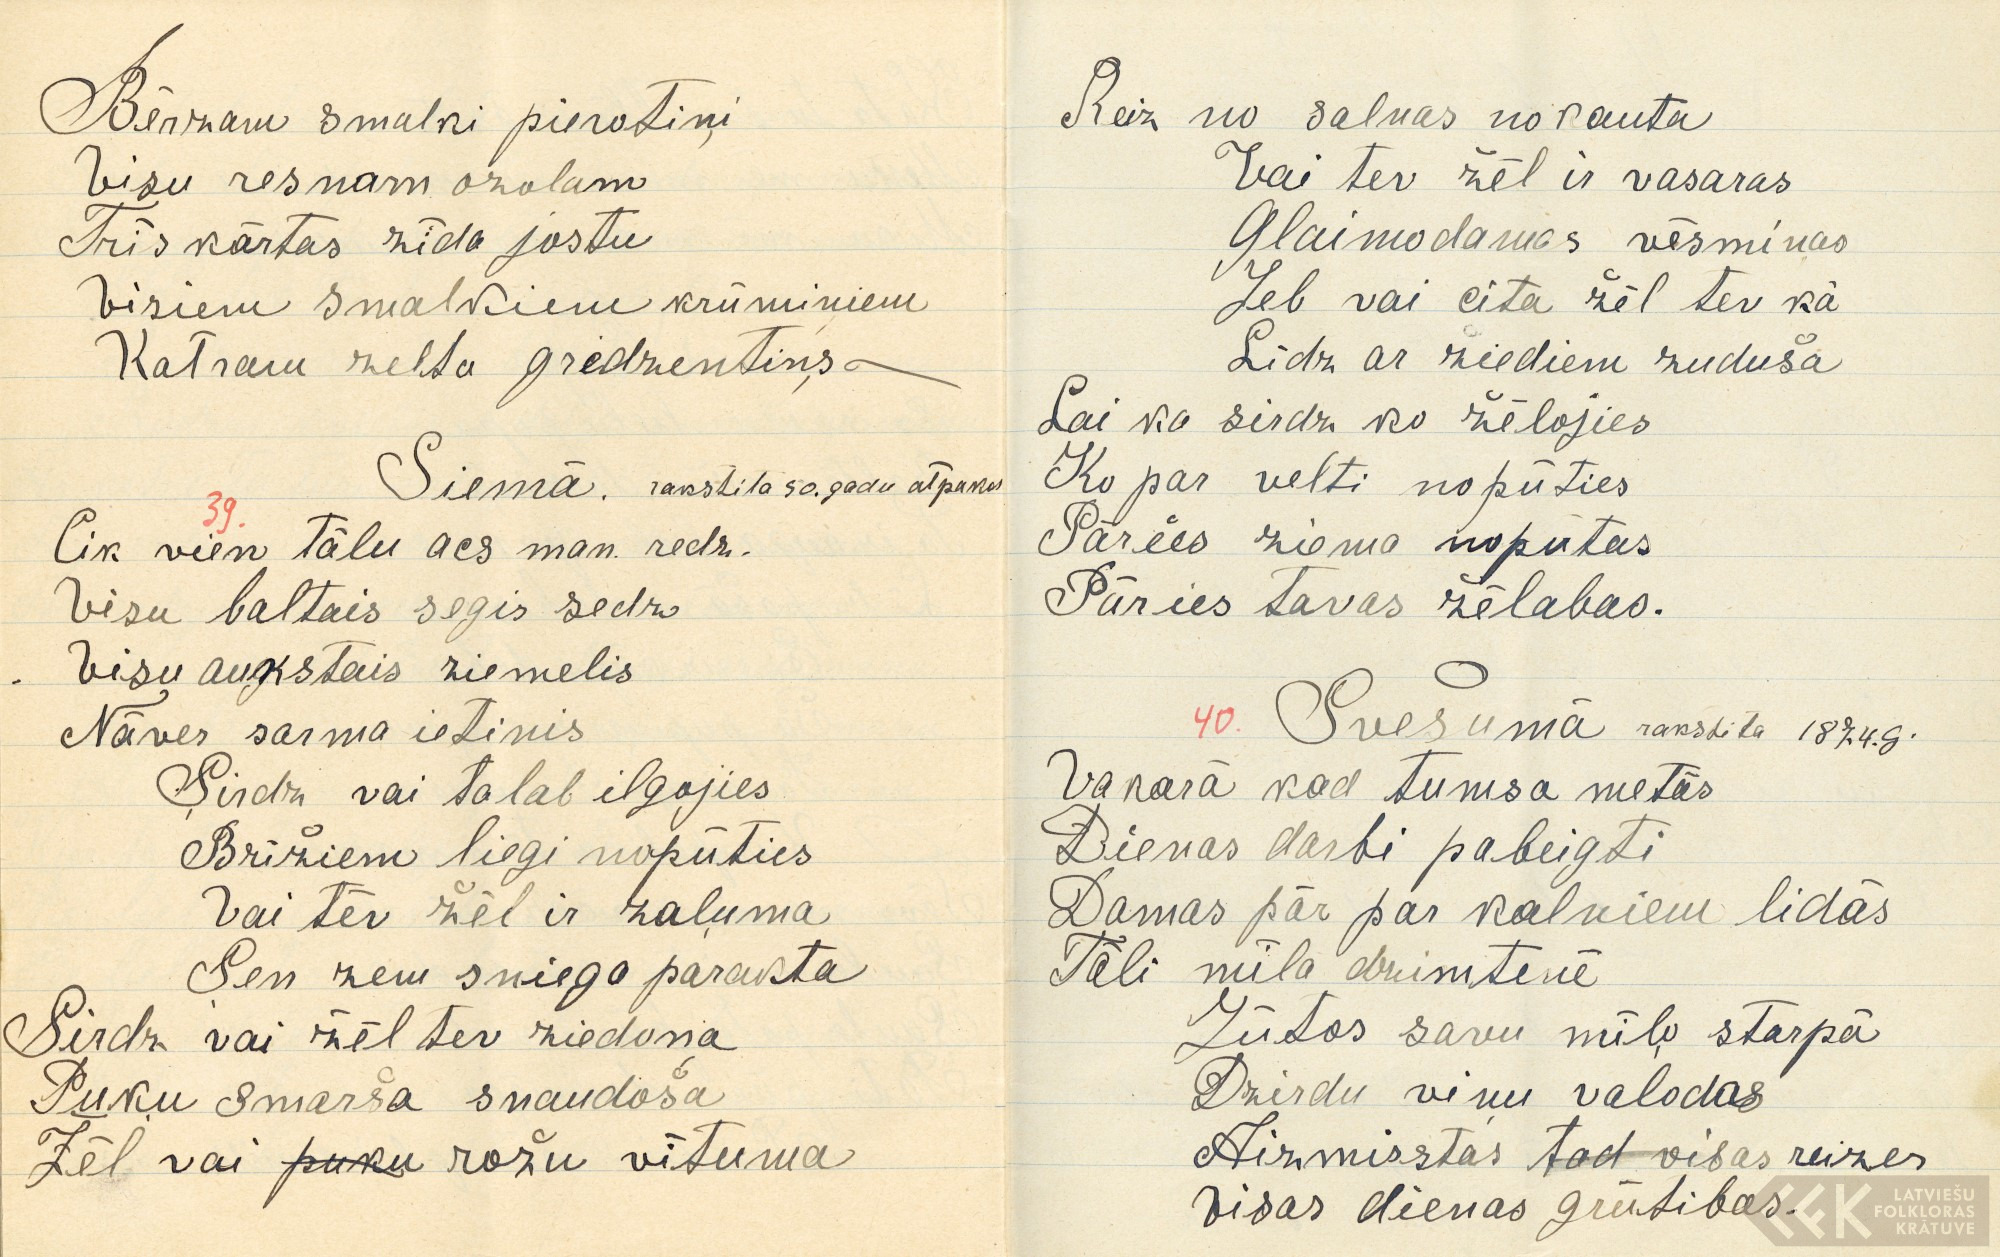 Bērzam smalki pierotiņi
Visu resnam ozolam
Trīs kārtas zīda jostu
Visiem smalkiem krūmiņiem
Katram zelta gredzentiņs
Siemā. rakstita 50. gadu atpakaļ
39.
Cik vien tālu acs man redz.
Visu baltais segis sedz
Visu aukstais ziemelis
Nāves sarma ietinis
Sirdz vai talab ilgojies
Brīžiem liegi nopūties
Vai tēv žēl ir zaļuma
Sen zem sniega parakta
Sirdz vai žēl tev ziedoņa
Puķu smarša snaudoša
Žēl vai puku rožu vītuma
Reiz no salnas nokauta
Vai tev žēl ir vasaras
Glaimodamas vēsmiņas
Jeb vai cita žēl tev kā
Līdz ar ziediem zuduša
Lai ka sirdz ko žēlojies
Ko par velti nopūties
Pāries ziema nopūtas
Pāries tavas žēlabas.
40. Svešumā rakstita 1874.g.
Vakarā kad tumsa metās
Dienas darbi pabeigti
Damas pār par kalniem lidās
Tāli mīla dzimtenē
Jūtos savu mīļo starpā
Dzirdu viņu valodas
Aizmisstas tad visas reizes
Visas dienas grūtibas.
LATVIEŠU
FOLKLORAS
KRĀTUVE